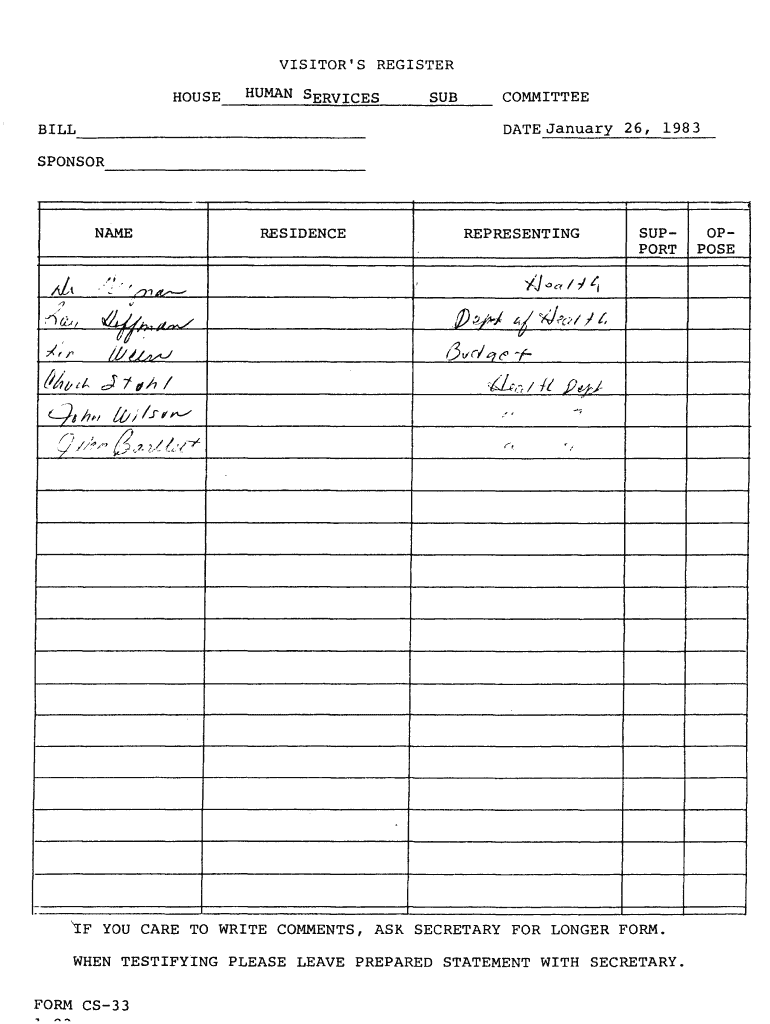 VISITOR'S REGISTER
HOUSE HUMAN SERVICES SUB COMMITTEE
BILL DATE January 26, 1983
SPONSOR
NAME RESIDENCE REPRESENTING SUP- OP-
PORT POSE
Health
Hoffman Dept of Health
Budget
Chuck Stohl Health Dept
John Wilson " "
Bartlett " "
IF YOU CARE TO WRITE COMMENTS, ASK SECRETARY FOR LONGER FORM.
WHEN TESTIFYING PLEASE LEAVE PREPARED STATEMENT WITH SECRETARY.
FORM CS-33